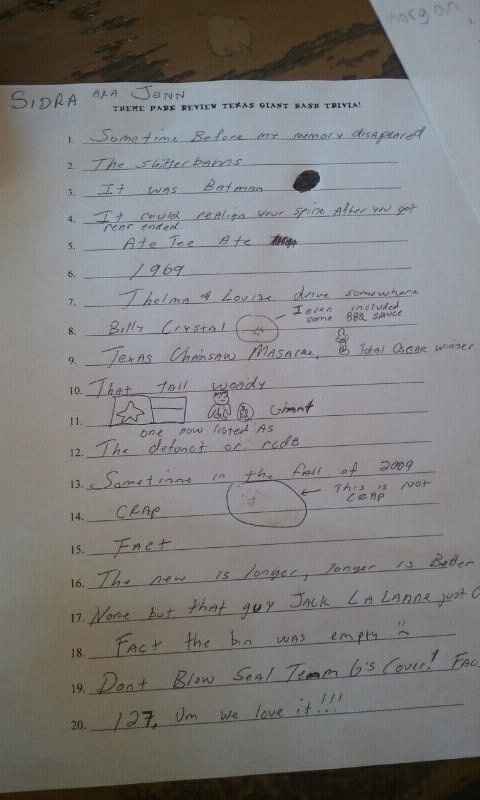 morgan
SIDRA AKA JENN
THEME PARK REVIEW TEXAS GIANT BASH TRIVIA!
1. Sometime Before my memory disapeared
2. The slitterbahns
3. It was Batman
4. It could realign your spine after you got
rear ended.
5. Ate Tee Ate
6. 1969
7. Thelma & Louise drive somewhere
8. Billy Crystal
I even included
some BBQ sauce
9. Texas Chainsaw Masacre, Total Oscar winner.
10. That tall woody
11. Giant
one now listed As
12. The defunct or rcdb
13. Sometime in the fall of 2009
14. CRAP
This is not
CRAP
15. FACT
16. The new is longer, longer is Better
17. None but that guy JACK LALANNE just
18. Fact the bin was empty
19. Dont Blow Seal Team 6's Cover! FAC
20. 127, Um we love it!!!